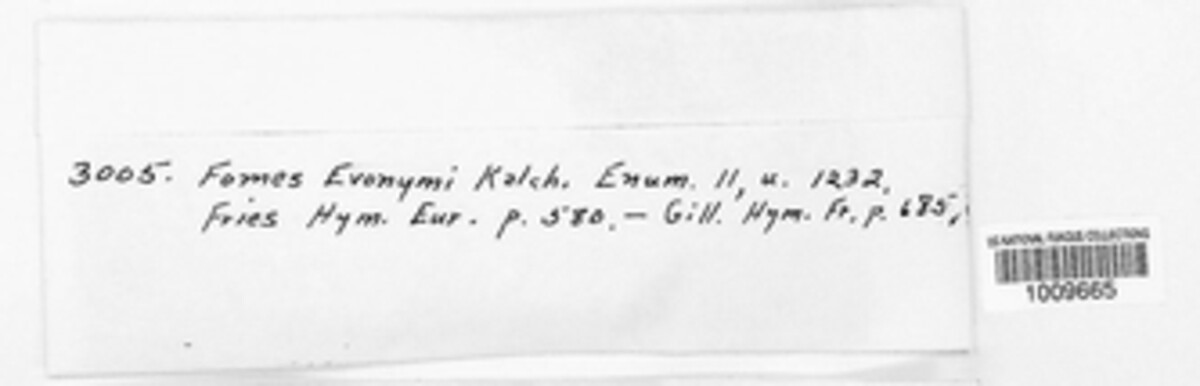 3005. Fomes Evonymi Kalch. Enum. II, u. 1232.
Fries Hym. Eur. p. 580. — Gill. Hym. Fr. p. 685,
US NATIONAL FUNGUS COLLECTIONS
1009665